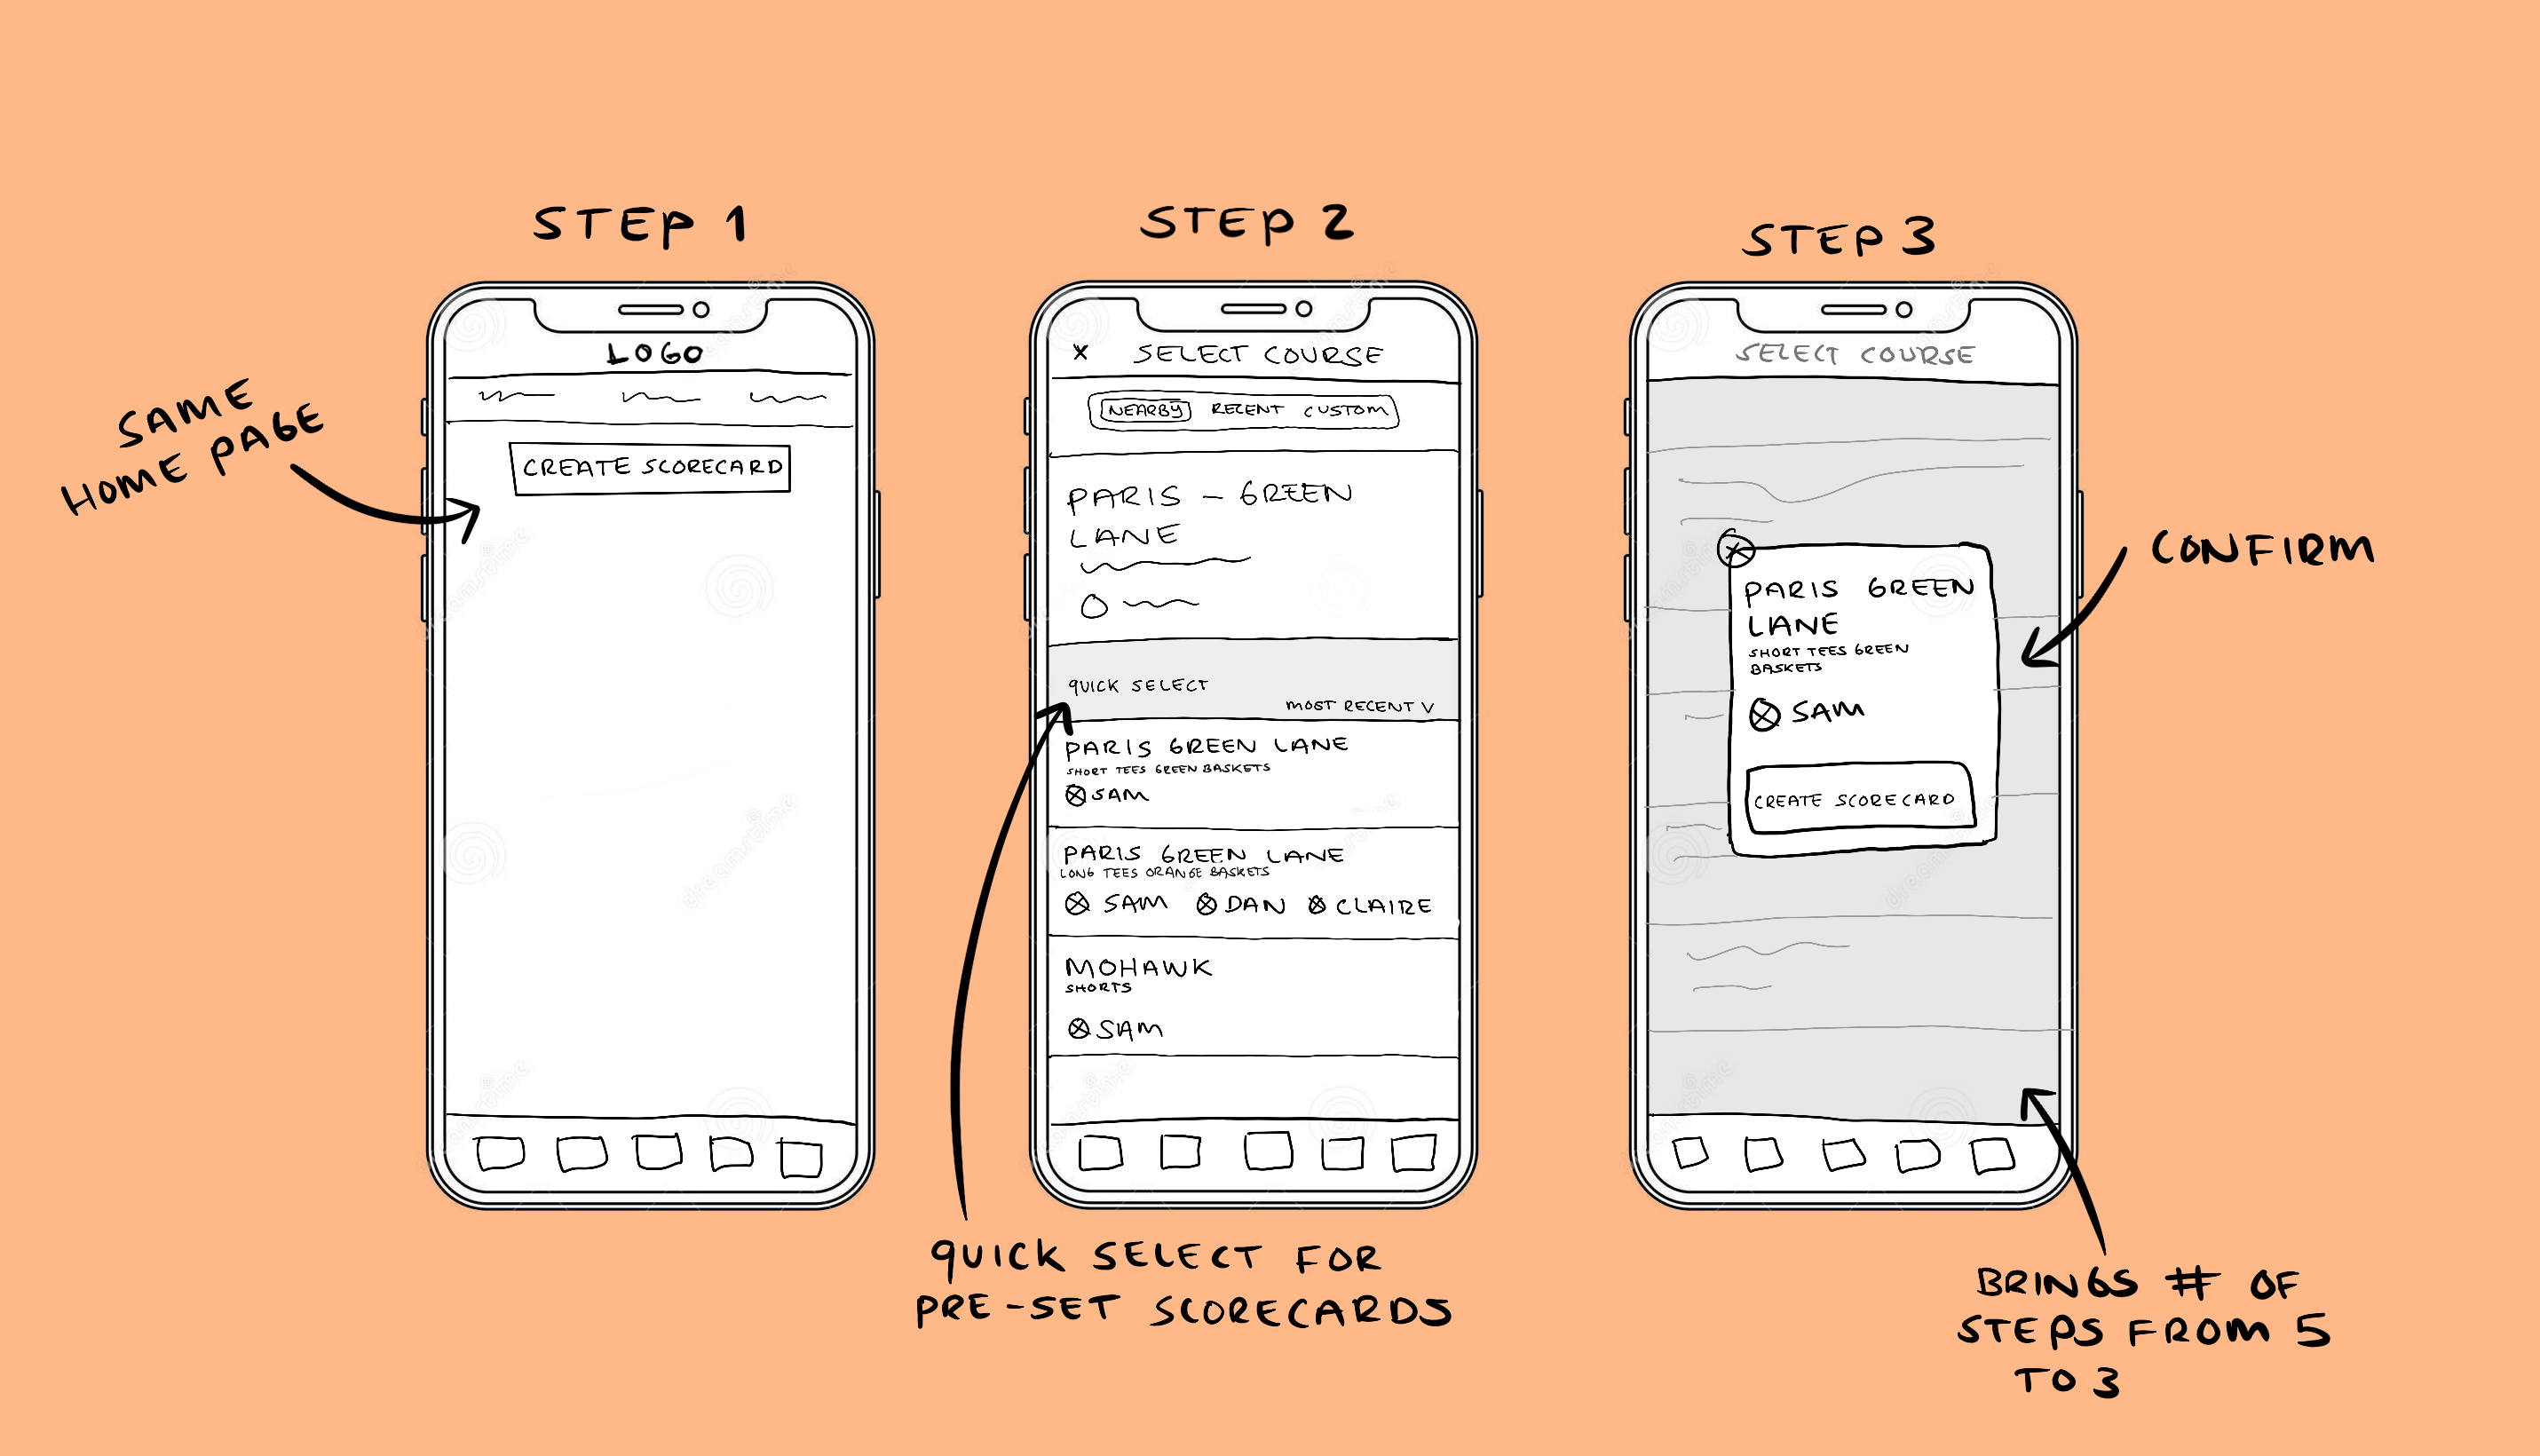 STEP 1
SAME
HOME PAGE
LOGO
CREATE SCORECARD
STEP 2
X SELECT COURSE
NEARBY RECENT CUSTOM
PARIS - GREEN
LANE
QUICK SELECT
MOST RECENT V
PARIS GREEN LANE
SHORT TEES GREEN BASKETS
SAM
PARIS GREEN LANE
LONG TEES ORANGE BASKETS
SAM DAN CLAIRE
MOHAWK
SHORTS
SAM
QUICK SELECT FOR
PRE-SET SCORECARDS
STEP 3
SELECT COURSE
PARIS GREEN
LANE
SHORT TEES GREEN
BASKETS
SAM
CREATE SCORECARD
CONFIRM
BRINGS # OF
STEPS FROM 5
TO 3
dreamstime